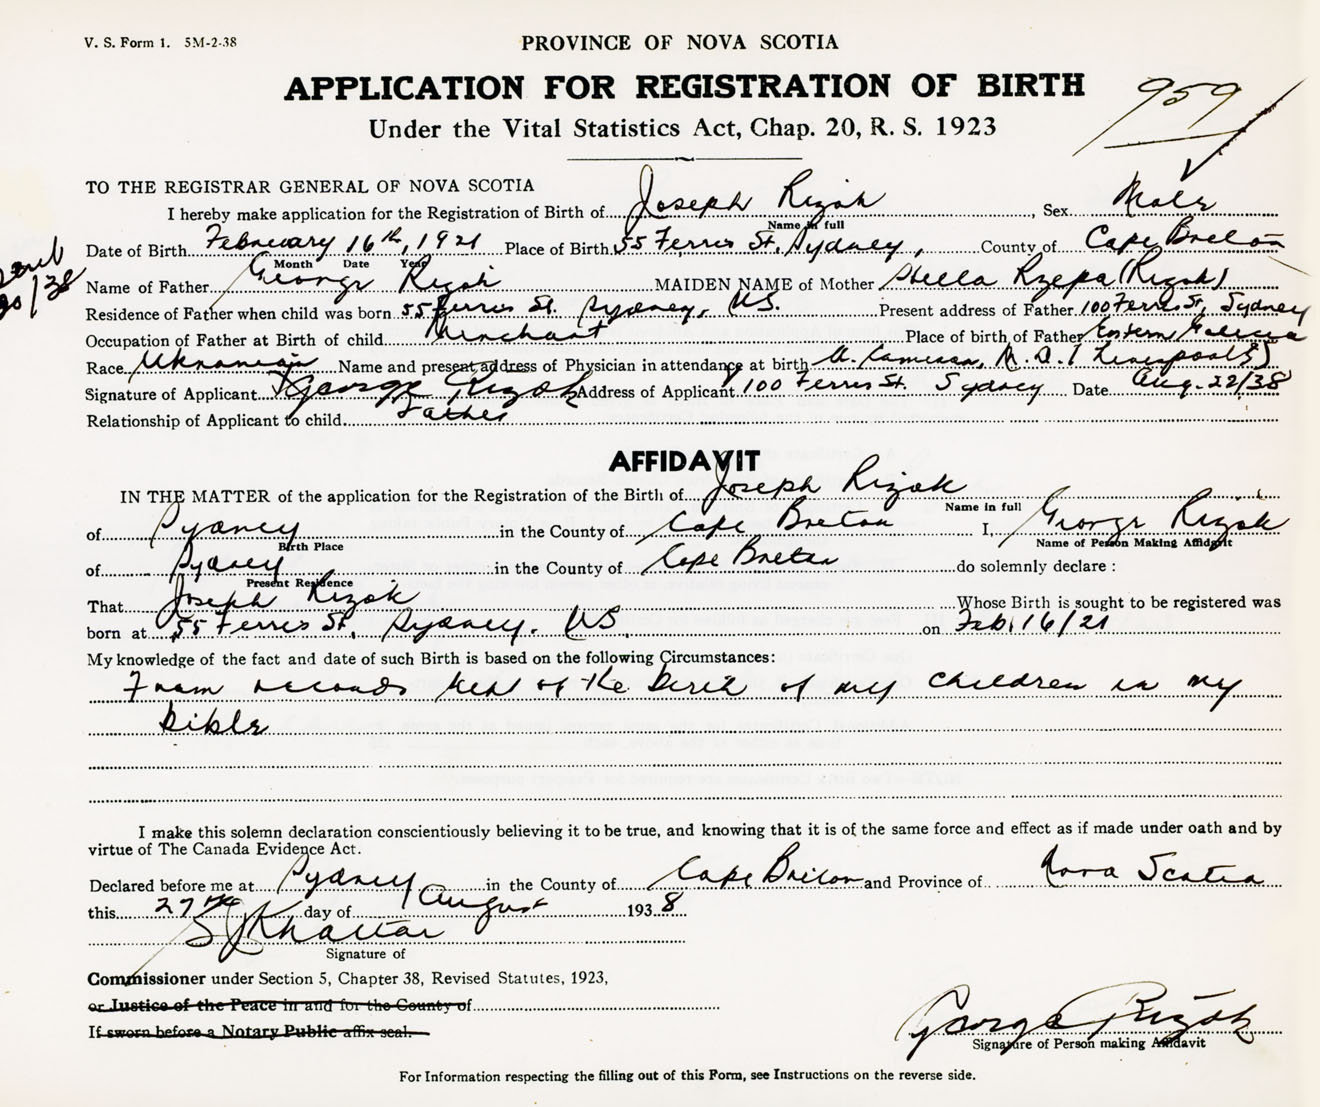 V. S. Form 1. 5M-2-38
PROVINCE OF NOVA SCOTIA
APPLICATION FOR REGISTRATION OF BIRTH
959
Under the Vital Statistics Act, Chap. 20, R. S. 1923
TO THE REGISTRAR GENERAL OF NOVA SCOTIA
I hereby make application for the Registration of Birth of Joseph Rizok, Sex Male
Name in full
Date of Birth February 16th, 1921 Place of Birth 55 Ferris St, Sydney, County of Cape Breton
Month Date Year
Name of Father George Rizok MAIDEN NAME of Mother Stella Rzepa (Rizok)
Residence of Father when child was born 55 Ferris St. Sydney, NS. Present address of Father 100 Ferris St, Sydney
Occupation of Father at Birth of child Merchant Place of birth of Father Eastern Galicia
Race Ukranian Name and present address of Physician in attendance at birth
Signature of Applicant X George Rizok Address of Applicant 100 Ferris St. Sydney Date Aug. 22/38
Relationship of Applicant to child Father
AFFIDAVIT
IN THE MATTER of the application for the Registration of the Birth of Joseph Rizok
Name in full
of Sydney in the County of Cape Breton I, George Rizok
Birth Place Name of Person Making Affidavit
of Sydney in the County of Cape Breton do solemnly declare :
Present Residence
That Joseph Rizok Whose Birth is sought to be registered was
born at 55 Ferris St, Sydney. NS. on Feb. 16/21
My knowledge of the fact and date of such Birth is based on the following Circumstances:
From records kept of the birth of my children in my
bible
I make this solemn declaration conscientiously believing it to be true, and knowing that it is of the same force and effect as if made under oath and by
virtue of The Canada Evidence Act.
Declared before me at Sydney in the County of Cape Breton and Province of Nova Scotia
this 27th day of August 1938
S J Khattar
Signature of
Commissioner under Section 5, Chapter 38, Revised Statutes, 1923,
or Justice of the Peace in and for the County of
If sworn before a Notary Public affix seal.
George Rizok
Signature of Person making Affidavit
For Information respecting the filling out of this Form, see Instructions on the reverse side.